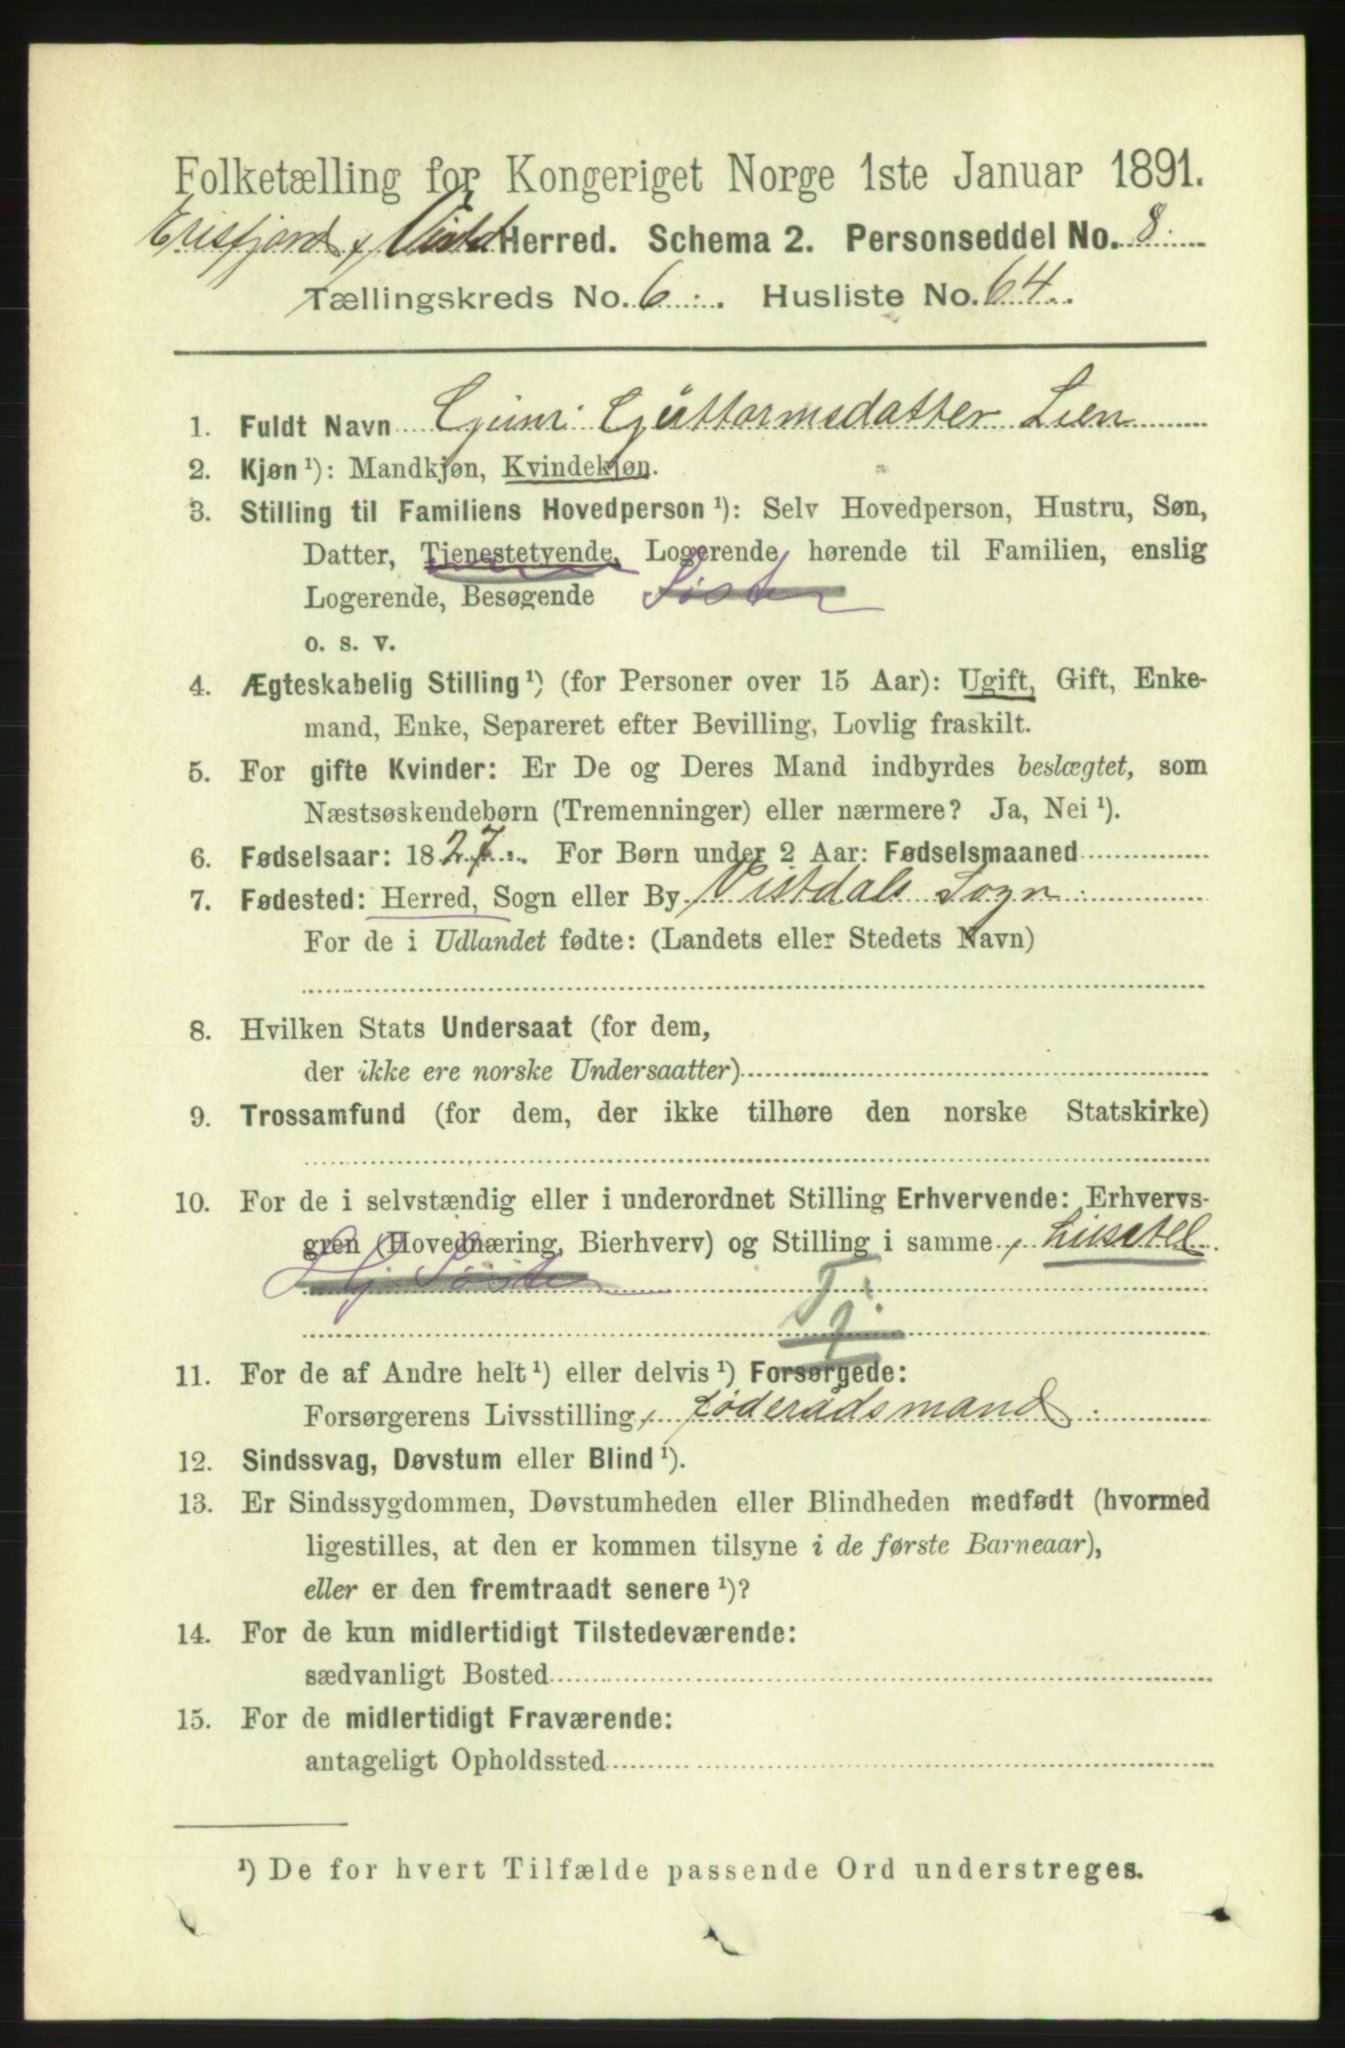 Folketælling for Kongeriget Norge 1ste Januar 1891.
Erisfjord & Vistd Herred. Schema 2. Personseddel No. 8.
Tællingskreds No. 6. Husliste No. 64.
1. Fuldt Navn Guttormsdatter Lien
2. Kjøn ¹): Mandkjøn, Kvindekjøn.
3. Stilling til Familiens Hovedperson ¹): Selv Hovedperson, Hustru, Søn,
Datter, Tjenestetyende, Logerende hørende til Familien, enslig
Logerende, Besøgende Søster
o. s. v.
4. Ægteskabelig Stilling ¹) (for Personer over 15 Aar): Ugift, Gift, Enke-
mand, Enke, Separeret efter Bevilling, Lovlig fraskilt.
5. For gifte Kvinder: Er De og Deres Mand indbyrdes beslægtet, som
Næstsøskendebørn (Tremenninger) eller nærmere? Ja, Nei ¹).
6. Fødselsaar: 1827. For Børn under 2 Aar: Fødselsmaaned
7. Fødested: Herred, Sogn eller By Vistdals Sogn
For de i Udlandet fødte: (Landets eller Stedets Navn)
8. Hvilken Stats Undersaat (for dem,
der ikke ere norske Undersaatter)
9. Trossamfund (for dem, der ikke tilhøre den norske Statskirke)
10. For de i selvstændig eller i underordnet Stilling Erhvervende: Erhvervs-
gren (Hovednæring, Bierhverv) og Stilling i samme
Søster Tj.
11. For de af Andre helt ¹) eller delvis ¹) Forsørgede:
Forsørgerens Livsstilling, føderådsmand
12. Sindssvag, Døvstum eller Blind ¹).
13. Er Sindssygdommen, Døvstumheden eller Blindheden medfødt (hvormed
ligestilles, at den er kommen tilsyne i de første Barneaar),
eller er den fremtraadt senere ¹)?
14. For de kun midlertidigt Tilstedeværende:
sædvanligt Bosted
15. For de midlertidigt Fraværende:
antageligt Opholdssted
¹) De for hvert Tilfælde passende Ord understreges.